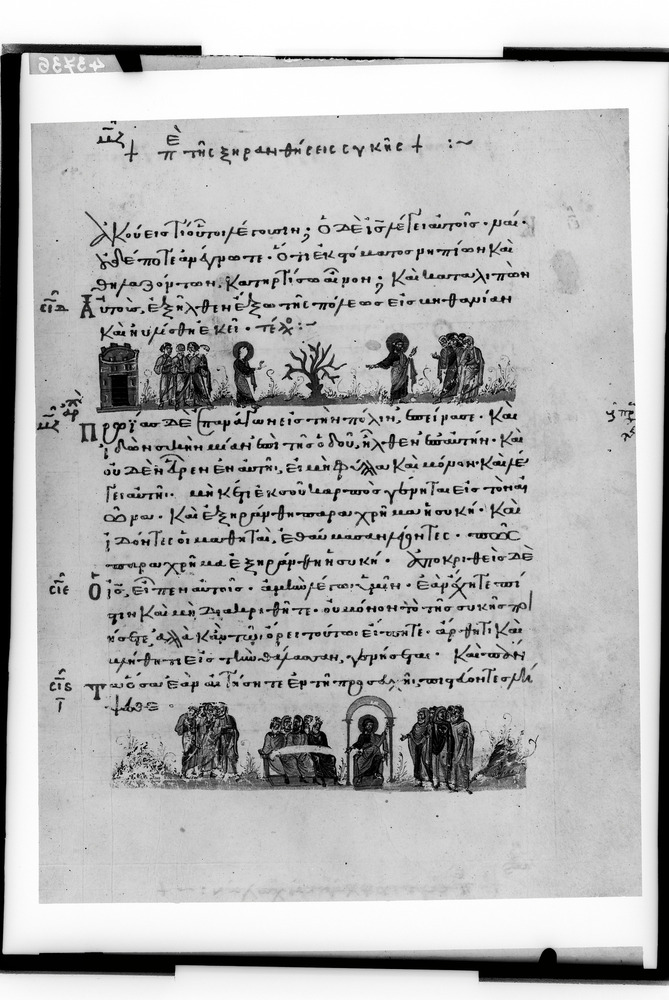 43736
+ ἐπ τῆς ξηρανθήσεις συκῆς + :~
Ἀκούεις τί οὗτοι λέγουσιν; ὁ δὲ ἰς λέγει αὐτοῖς· ναί·
οὐδέποτε ἀνέγνωτε· ὅτι ἐκ στόματος νηπίων καὶ
θηλαζόντων, κατηρτίσω αἶνον; καὶ καταλιπὼν
σιδ Αὐτοὺς, ἐξῆλθεν ἔξω τῆς πόλεως εἰς βηθανίαν
καὶ ηὐλίσθη ἐκεῖ· τέλος :~
Πρωΐας δὲ ἐπανάγων εἰς τὴν πόλιν, ἐπείνασε· καὶ
ἰδὼν συκῆν μίαν ἐπὶ τῆς ὁδοῦ, ἦλθεν ἐπ' αὐτήν· καὶ
οὐδὲν εὗρεν ἐν αὐτῇ, εἰ μὴ φύλλα καὶ μόνον· καὶ λέ
γει αὐτῇ· μηκέτι ἐκ σοῦ καρπὸς γένηται εἰς τὸν αἰ
ῶνα· καὶ ἐξηράνθη παραχρῆμα ἡ συκῆ· καὶ
ἰδόντες οἱ μαθηταὶ, ἐθαύμασαν λέγοντες· πῶς
παραχρῆμα ἐξηράνθη ἡ συκῆ· ἀποκριθεὶς δὲ
σιε Ὁ ἰς, εἶπεν αὐτοῖς· ἀμὴν λέγω ὑμῖν· ἐὰν ἔχητε πί
στιν καὶ μὴ διακριθῆτε· οὐ μόνον τὸ τῆς συκῆς ποι
ήσετε, ἀλλὰ κἂν τῷ ὄρει τούτῳ εἴπητε· ἄρθητι καὶ
βλήθητι εἰς τὴν θάλασσαν, γενήσεται· καὶ πάν
σιϛ Τα ὅσα ἐὰν αἰτήσητε ἐν τῇ προσευχῇ, πιστεύοντες λή
ψεσθε